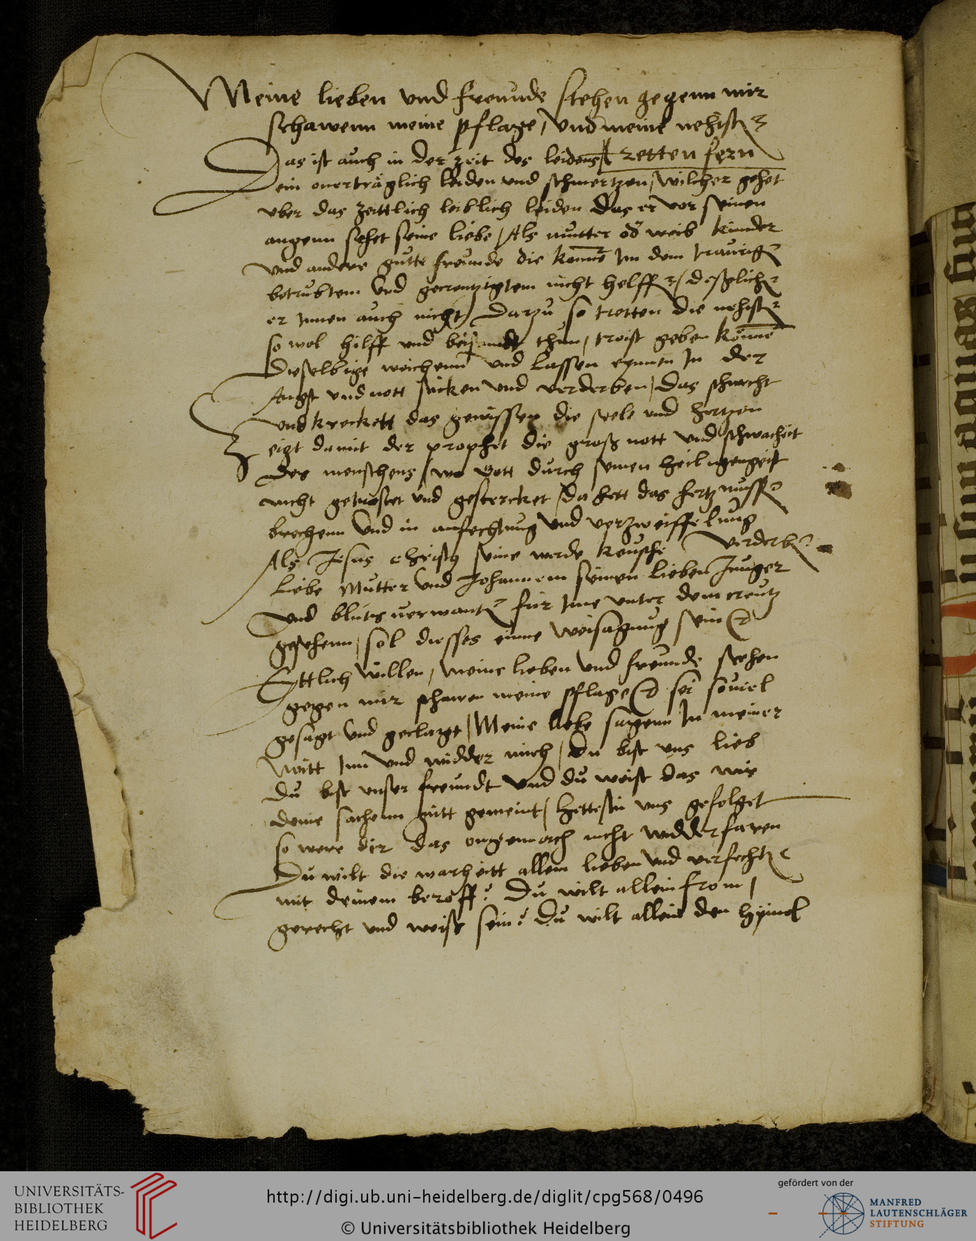 Meine lieben vnd freunde stehen gegenn mir
schawenn meine pflage / vnd meine nehist
tretten fern
Das ist auch in der zeit des leidens
ein onerträglich leiden vnd schmertzen / wilcher gehet
vber das zeittlich leiblich leiden das er vor seinen
augenn sehet seine liebe / Als mutter od weib kinder
vnd andere gutte freunde die konnē Im dem traurigē
betrubtem vnd gecreutzigtem nicht helffē / desglichē
er Innen auch nicht / Darzu so tretten die nehistē
so wol hilff vnd beistandt thun / troist geben konnē
dieselbige weichenn vnd lassen eynnen In der
Angst vnd nott sticken vnd verderben / Das schwecht
vnd krenckett das gewissen die seele vnd hertzen
Zeigt damit der prophet die groß nott vnd schwacheit
des menschens / wo Gott durch seinen heiligen geist
nicht getröstet vnd gestercket / da hett das hertz mussē
brechenn vnd in anfechtung vnd vertzweiffelung
verderbē
Als Jesus christus seine werde keusche
liebe Mutter vnd Johannem seinen lieben Junger
vnd bluts verwantē für Ime vnter dem creutz
gesehenn / sol dieses eine weisagung sein
Ettlich wollen / meine lieben vnd freunde stehen
gegen mir schawen meine pflage sei souiel
gesagt vnd geclagt / Meine liebe sagenn In meiner
nott Im vnd widder mich / Du bist vns lieb
du bist vnser freundt vnd du weist das wir
deine sachenn gutt gemeint / hettestu vns gefolget
so were dir das vngemach nicht widderfaren
Du wilt die warheitt allein lieben vnd verfechtē
mit deinem beroff? Du wilt allein from /
gerecht vnd weise sein? Du wilt allein den hymel
UNIVERSITÄTS-
BIBLIOTHEK
HEIDELBERG
http://digi.ub.uni-heidelberg.de/diglit/cpg568/0496
© Universitätsbibliothek Heidelberg
gefördert von der
MANFRED
LAUTENSCHLÄGER
STIFTUNG